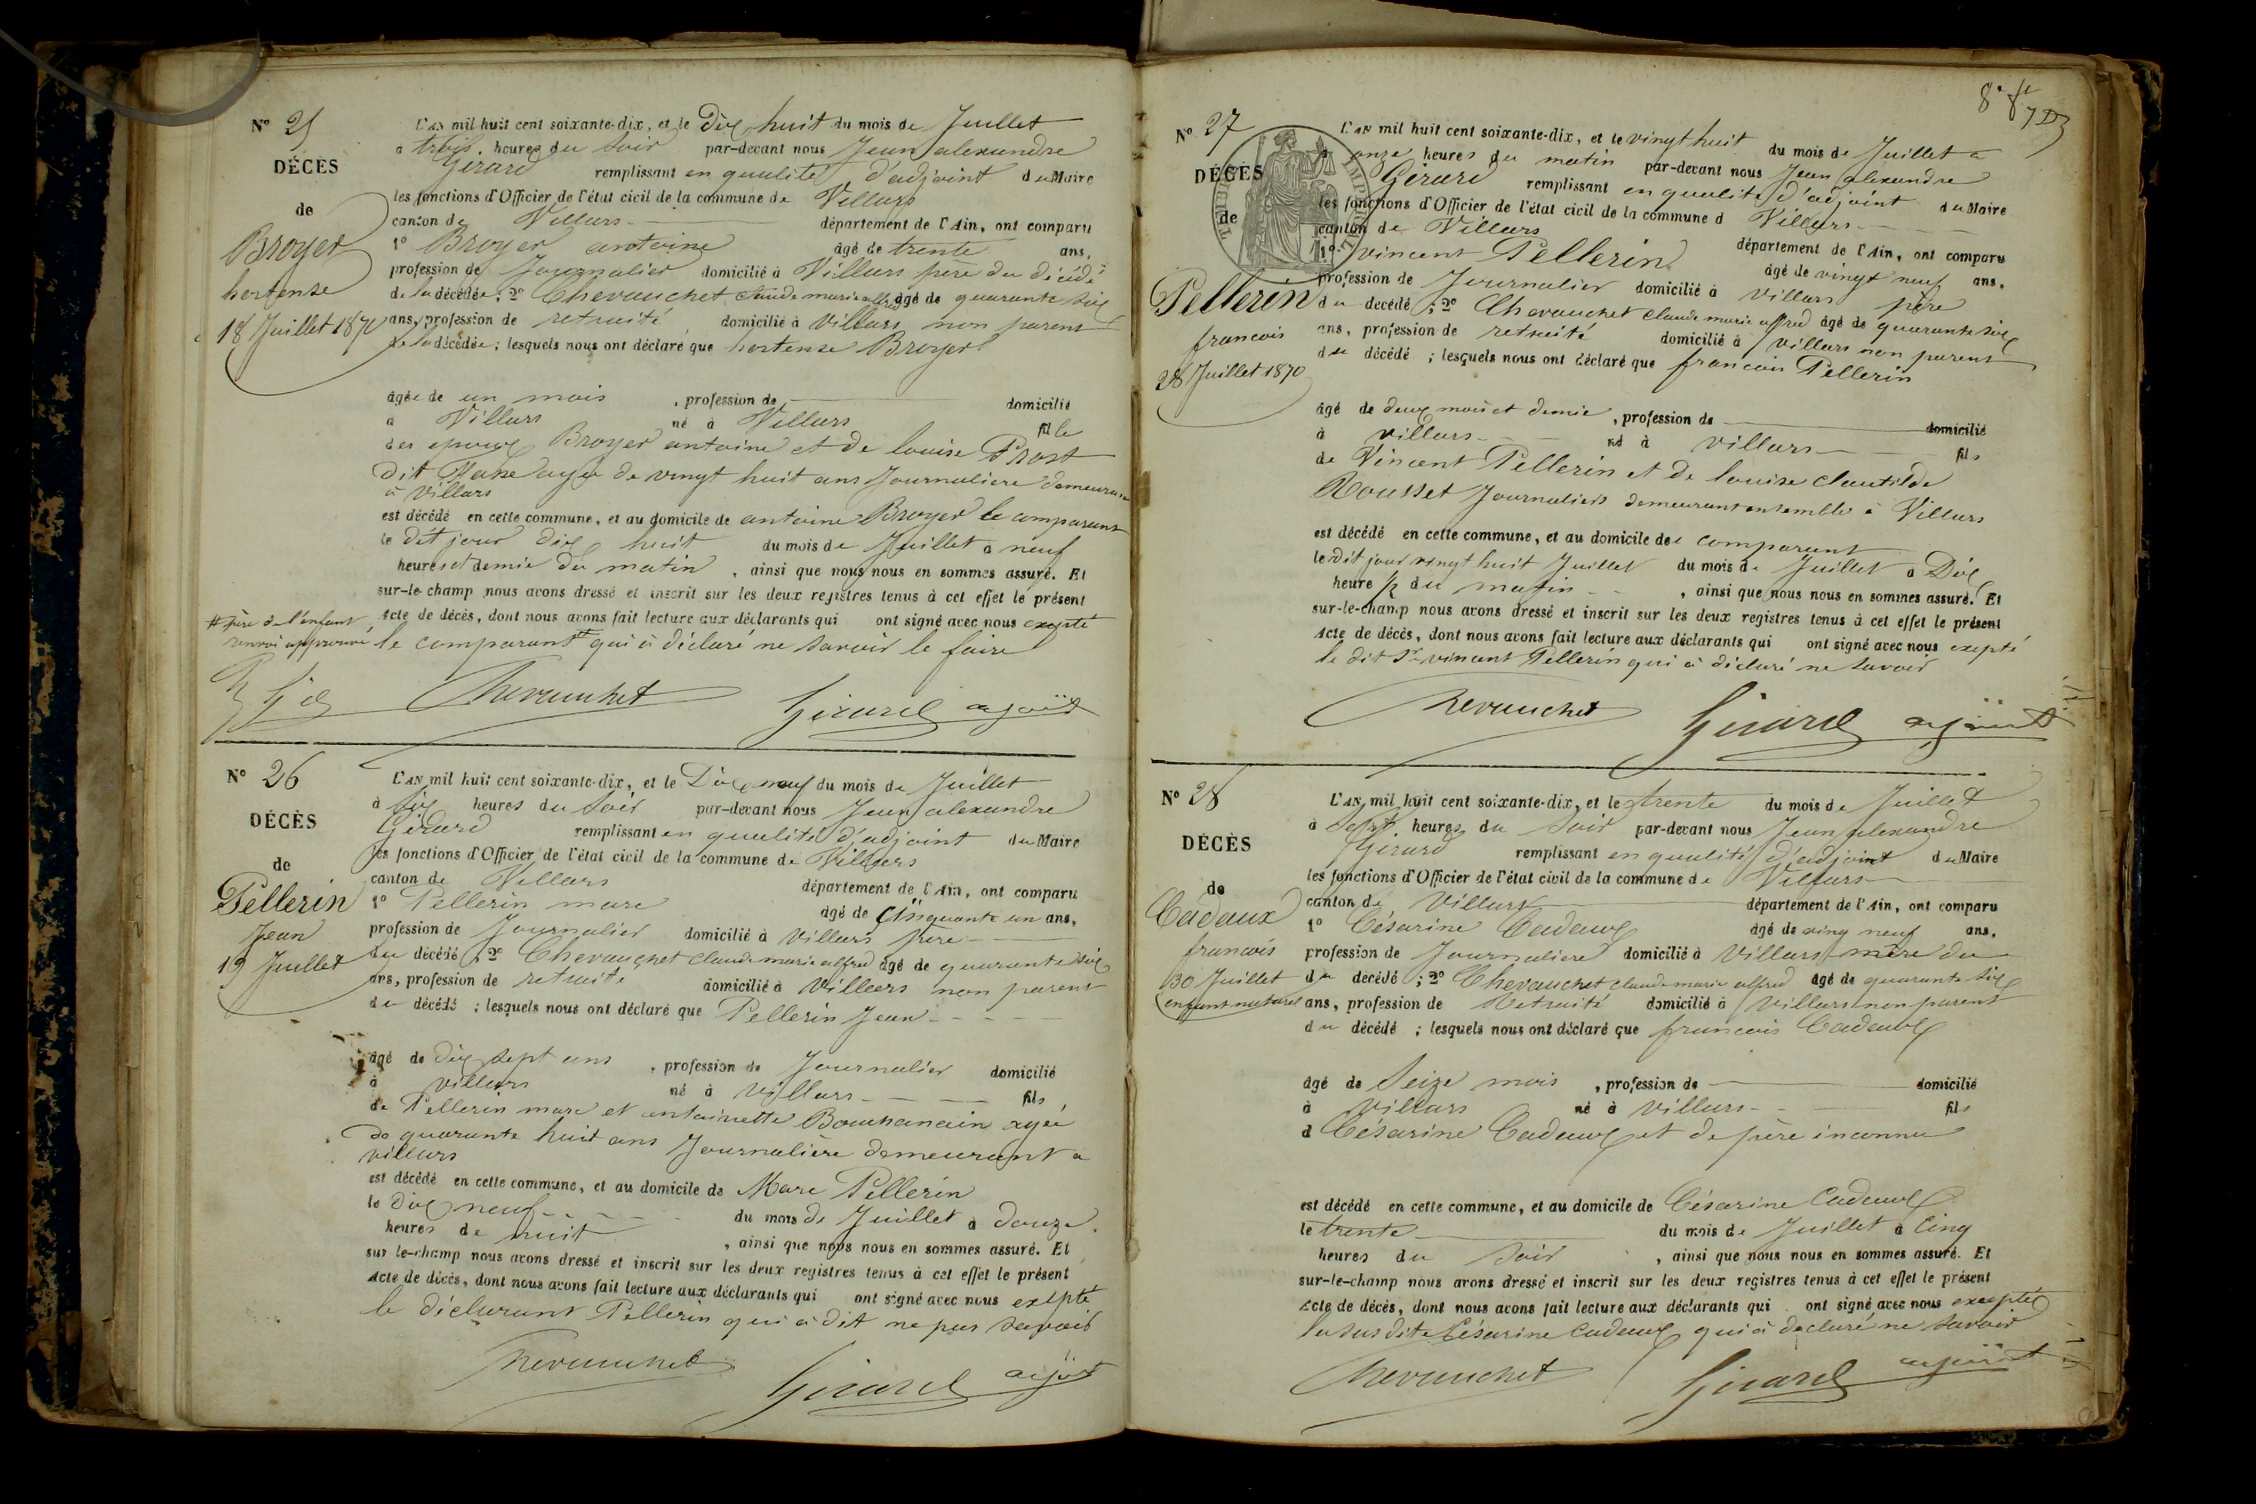 N° 25
DÉCÈS
de
Broyer
hortense
18 Juillet 1870
L'AN mil huit cent soixante-dix, et le Dix huit du mois de Juillet
à trois heures du soir par-devant nous Jean alexandre
Girard remplissant en qualité d'adjoint du Maire
les fonctions d'Officier de l'état civil de la commune de Villars
canton de Villars département de l'Ain, ont comparu
1° Broyer antoine âgé de trente ans,
profession de Journalier domicilié à Villars père du décédé
de la décédée; 2° Chevauchet claude marie alfred âgé de quarante six
ans, profession de retraité domicilié à Villars non parent
de la décédée; lesquels nous ont déclaré que hortense Broyer
âgée de un mois, profession de domicilié
à Villars né à Villars fille
des epoux Broyer antoine et de louise Prost
dit agée de vingt huit ans Journaliere demeurant
à Villars
est décédé en cette commune, et au domicile de antoine Broyer le comparant
le dit jour dix huit du mois de Juillet à neuf
heures et demie du matin, ainsi que nous nous en sommes assuré. Et
sur-le-champ nous avons dressé et inscrit sur les deux registres tenus à cet effet le présent
Acte de décès, dont nous avons fait lecture aux déclarants qui ont signé avec nous exepté
le comparant # qui à déclaré ne savoir le faire
# père de l'enfant
renvoi approuvé
Chevauchet Girard adjoint
N° 26
DÉCÈS
de
Pellerin
Jean
19 Juillet
L'AN mil huit cent soixante-dix, et le Dix neuf du mois de Juillet
à Six heures du Soir par-devant nous Jean alexandre
Girard remplissant en qualité d'adjoint du Maire
les fonctions d'Officier de l'état civil de la commune de Villars
canton de Villars département de l'Ain, ont comparu
1° Pellerin marc âgé de Cinquante un ans,
profession de Journalier domicilié à Villars père
du décédé; 2° Chevauchet claude marie alfred âgé de quarante six
ans, profession de retraité domicilié à Villars non parent
du décédé; lesquels nous ont déclaré que Pellerin Jean
âgé de dix sept ans, profession de Journalier domicilié
à villars né à villars fils
de Pellerin marc et antoinette agée
de quarante huit ans Journalière demeurant a
villars
est décédé en cette commune, et au domicile de Marc Pellerin
le Dix neuf du mois de Juillet à douze
heures de nuit, ainsi que nous nous en sommes assuré. Et
sur-le-champ nous avons dressé et inscrit sur les deux registres tenus à cet effet le présent
Acte de décès, dont nous avons fait lecture aux déclarants qui ont signé avec nous exepté
le déclarant Pellerin qui à dit ne pas savoir
Chevauchet Girard adjoint
N° 27
DÉCÈS
de
Pellerin
francois
28 Juillet 1870
TIMBRE IMPERIAL
L'AN mil huit cent soixante-dix, et le vingt huit du mois de Juillet a
à onze heures du matin par-devant nous Jean alexandre
Girard remplissant en qualité d'adjoint du Maire
les fonctions d'Officier de l'état civil de la commune d Villars
canton de Villars département de l'Ain, ont comparu
1° vincent Pellerin âgé de vingt neuf ans,
profession de Journalier domicilié à Villars père
du décédé; 2° Chevauchet claude marie alfred âgé de quarante six
ans, profession de retraité domicilié à villars non parent
du décédé; lesquels nous ont déclaré que francois Pellerin
âgé de deux mois et demie, profession de domicilié
à villars né à villars fils
de Vincent Pellerin et de louise clautilde
Rousset Journaliers demeurant ensemble à Villars
est décédé en cette commune, et au domicile de comparant
le dit jour vingt huit Juillet du mois de Juillet à Dix
heure ½ du matin, ainsi que nous nous en sommes assuré. Et
sur-le-champ nous avons dressé et inscrit sur les deux registres tenus à cet effet le présent
Acte de décès, dont nous avons fait lecture aux déclarants qui ont signé avec nous exepté
le dit Sr vincent Pellerin qui à déclaré ne savoir
Chevauchet Girard adjoint
N° 28
DÉCÈS
de
Cadaux
francois
30 Juillet
enfant naturel
L'AN mil huit cent soixante-dix, et le trente du mois de Juillet
à Sept heures du Soir par-devant nous Jean alexandre
Girard remplissant en qualité d'adjoint du Maire
les fonctions d'Officier de l'état civil de la commune de Villars
canton de Villars département de l'Ain, ont comparu
1° Césarine Cadaux âgé de ving neuf ans,
profession de Journaliere domicilié à Villars mère du
du décédé; 2° Chevauchet claude marie alfred âgé de quarante six
ans, profession de Retraité domicilié à villars non parent
du décédé; lesquels nous ont déclaré que francois Cadaux
âgé de Seize mois, profession de domicilié
à villars né à villars fils
d Césarine Cadaux et de père inconnu
est décédé en cette commune, et au domicile de Césarine Cadaux
le trente du mois de Juillet à Cinq
heures du soir, ainsi que nous nous en sommes assuré. Et
sur-le-champ nous avons dressé et inscrit sur les deux registres tenus à cet effet le présent
Acte de décès, dont nous avons fait lecture aux déclarants qui ont signé avec nous exceptée
la sus dite Césarine Cadaux qui à declaré ne savoir
Chevauchet Girard adjoint